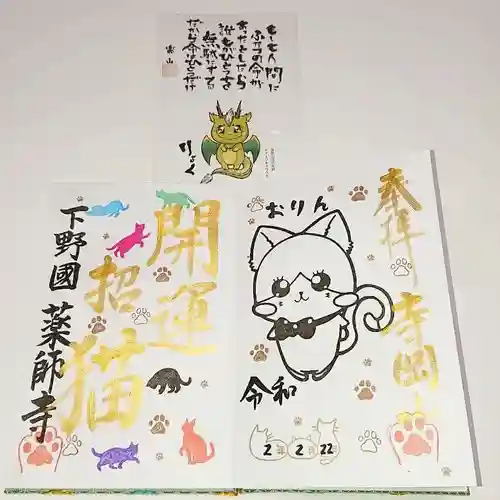 もし人間に
ふたつの命が
あったとしたら
誰もがひとつを
無駄にする
だから命はひとつだけ
りょく
奉拝
寺岡山
おりん
令和
2年2月22
開運
招猫
下野國 薬師寺